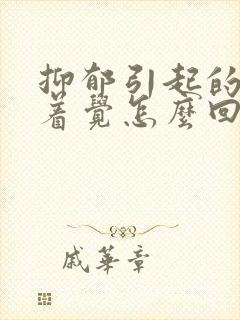 抑郁引起的
着覺怎麼回
戚華章